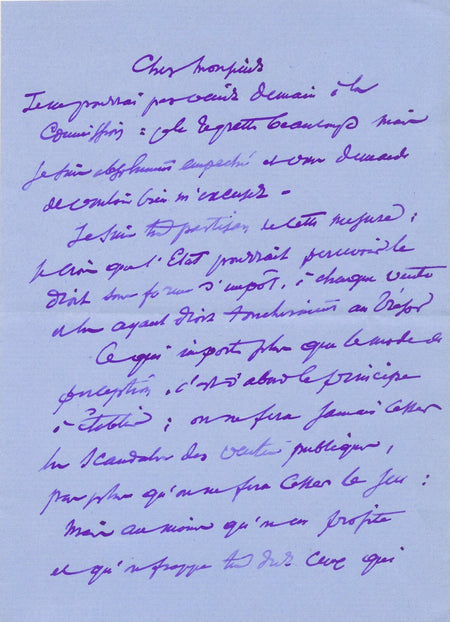 Cher Monsieur
Je ne pourrai pas venir demain à la
Commission : je le regrette beaucoup mais
je suis absolument empêché et vous demande
de vouloir bien m'excuser -
Je suis très partisan de cette mesure ;
je crois que l'Etat pourrait percevoir le
droit sous forme d'impôt, à chaque vente
et les ayant droit toucheraient au Trésor
Ce qui importe plus que le mode de
perception, c'est d'abord le principe
à établir ; on ne fera jamais cesser
les scandales des ventes publiques,
pas plus qu'on ne fera cesser le jeu :
mais au moins qu'on en profite
et qu'on frappe très dur ceux qui